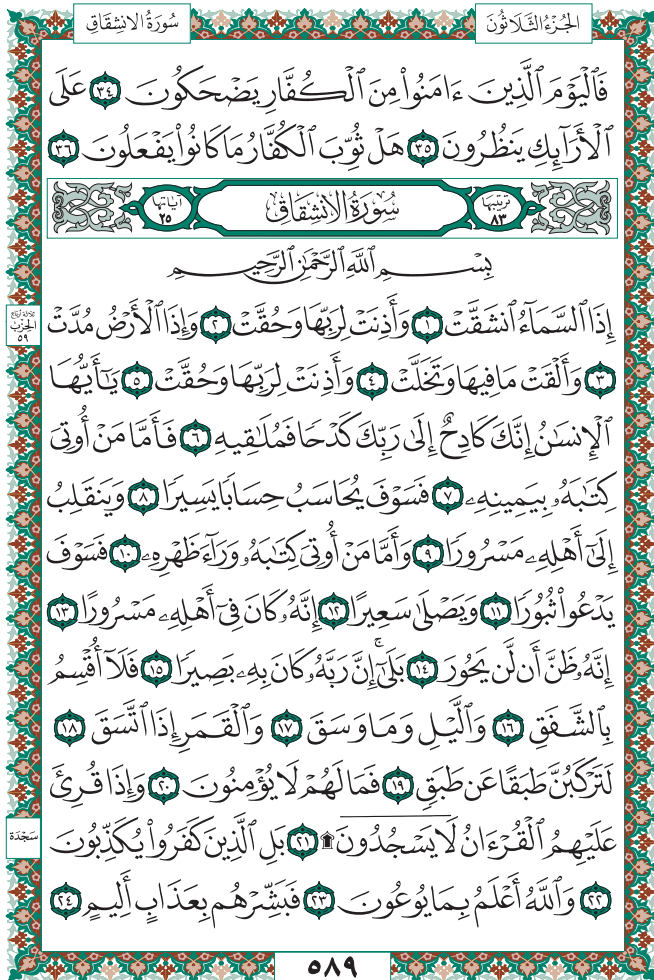 الجُزْءُ الثَّلَاثُونَ
سُورَةُ الانشِقَاقِ
فَٱلْيَوْمَ ٱلَّذِينَ ءَامَنُوا۟ مِنَ ٱلْكُفَّارِ يَضْحَكُونَ ٣٤ عَلَى
ٱلْأَرَآئِكِ يَنظُرُونَ ٣٥ هَلْ ثُوِّبَ ٱلْكُفَّارُ مَا كَانُوا۟ يَفْعَلُونَ ٣٦
ترتيبها ٨٣ سُورَةُ الانشِقَاقِ آياتها ٢٥
بِسْمِ ٱللَّهِ ٱلرَّحْمَٰنِ ٱلرَّحِيمِ
إِذَا ٱلسَّمَآءُ ٱنشَقَّتْ ١ وَأَذِنَتْ لِرَبِّهَا وَحُقَّتْ ٢ وَإِذَا ٱلْأَرْضُ مُدَّتْ
ثلاثة أرباع
الحزب
٥٩
٣ وَأَلْقَتْ مَا فِيهَا وَتَخَلَّتْ ٤ وَأَذِنَتْ لِرَبِّهَا وَحُقَّتْ ٥ يَٰٓأَيُّهَا
ٱلْإِنسَٰنُ إِنَّكَ كَادِحٌ إِلَىٰ رَبِّكَ كَدْحًا فَمُلَٰقِيهِ ٦ فَأَمَّا مَنْ أُوتِىَ
كِتَٰبَهُۥ بِيَمِينِهِۦ ٧ فَسَوْفَ يُحَاسَبُ حِسَابًا يَسِيرًا ٨ وَيَنقَلِبُ
إِلَىٰٓ أَهْلِهِۦ مَسْرُورًا ٩ وَأَمَّا مَنْ أُوتِىَ كِتَٰبَهُۥ وَرَآءَ ظَهْرِهِۦ ١٠ فَسَوْفَ
يَدْعُوا۟ ثُبُورًا ١١ وَيَصْلَىٰ سَعِيرًا ١٢ إِنَّهُۥ كَانَ فِىٓ أَهْلِهِۦ مَسْرُورًا ١٣
إِنَّهُۥ ظَنَّ أَن لَّن يَحُورَ ١٤ بَلَىٰٓۚ إِنَّ رَبَّهُۥ كَانَ بِهِۦ بَصِيرًا ١٥ فَلَآ أُقْسِمُ
بِٱلشَّفَقِ ١٦ وَٱلَّيْلِ وَمَا وَسَقَ ١٧ وَٱلْقَمَرِ إِذَا ٱتَّسَقَ ١٨
لَتَرْكَبُنَّ طَبَقًا عَن طَبَقٍ ١٩ فَمَا لَهُمْ لَا يُؤْمِنُونَ ٢٠ وَإِذَا قُرِئَ
عَلَيْهِمُ ٱلْقُرْءَانُ لَا يَسْجُدُونَ ۩ ٢١ بَلِ ٱلَّذِينَ كَفَرُوا۟ يُكَذِّبُونَ
سَجْدَة
٢٢ وَٱللَّهُ أَعْلَمُ بِمَا يُوعُونَ ٢٣ فَبَشِّرْهُم بِعَذَابٍ أَلِيمٍ ٢٤
٥٨٩